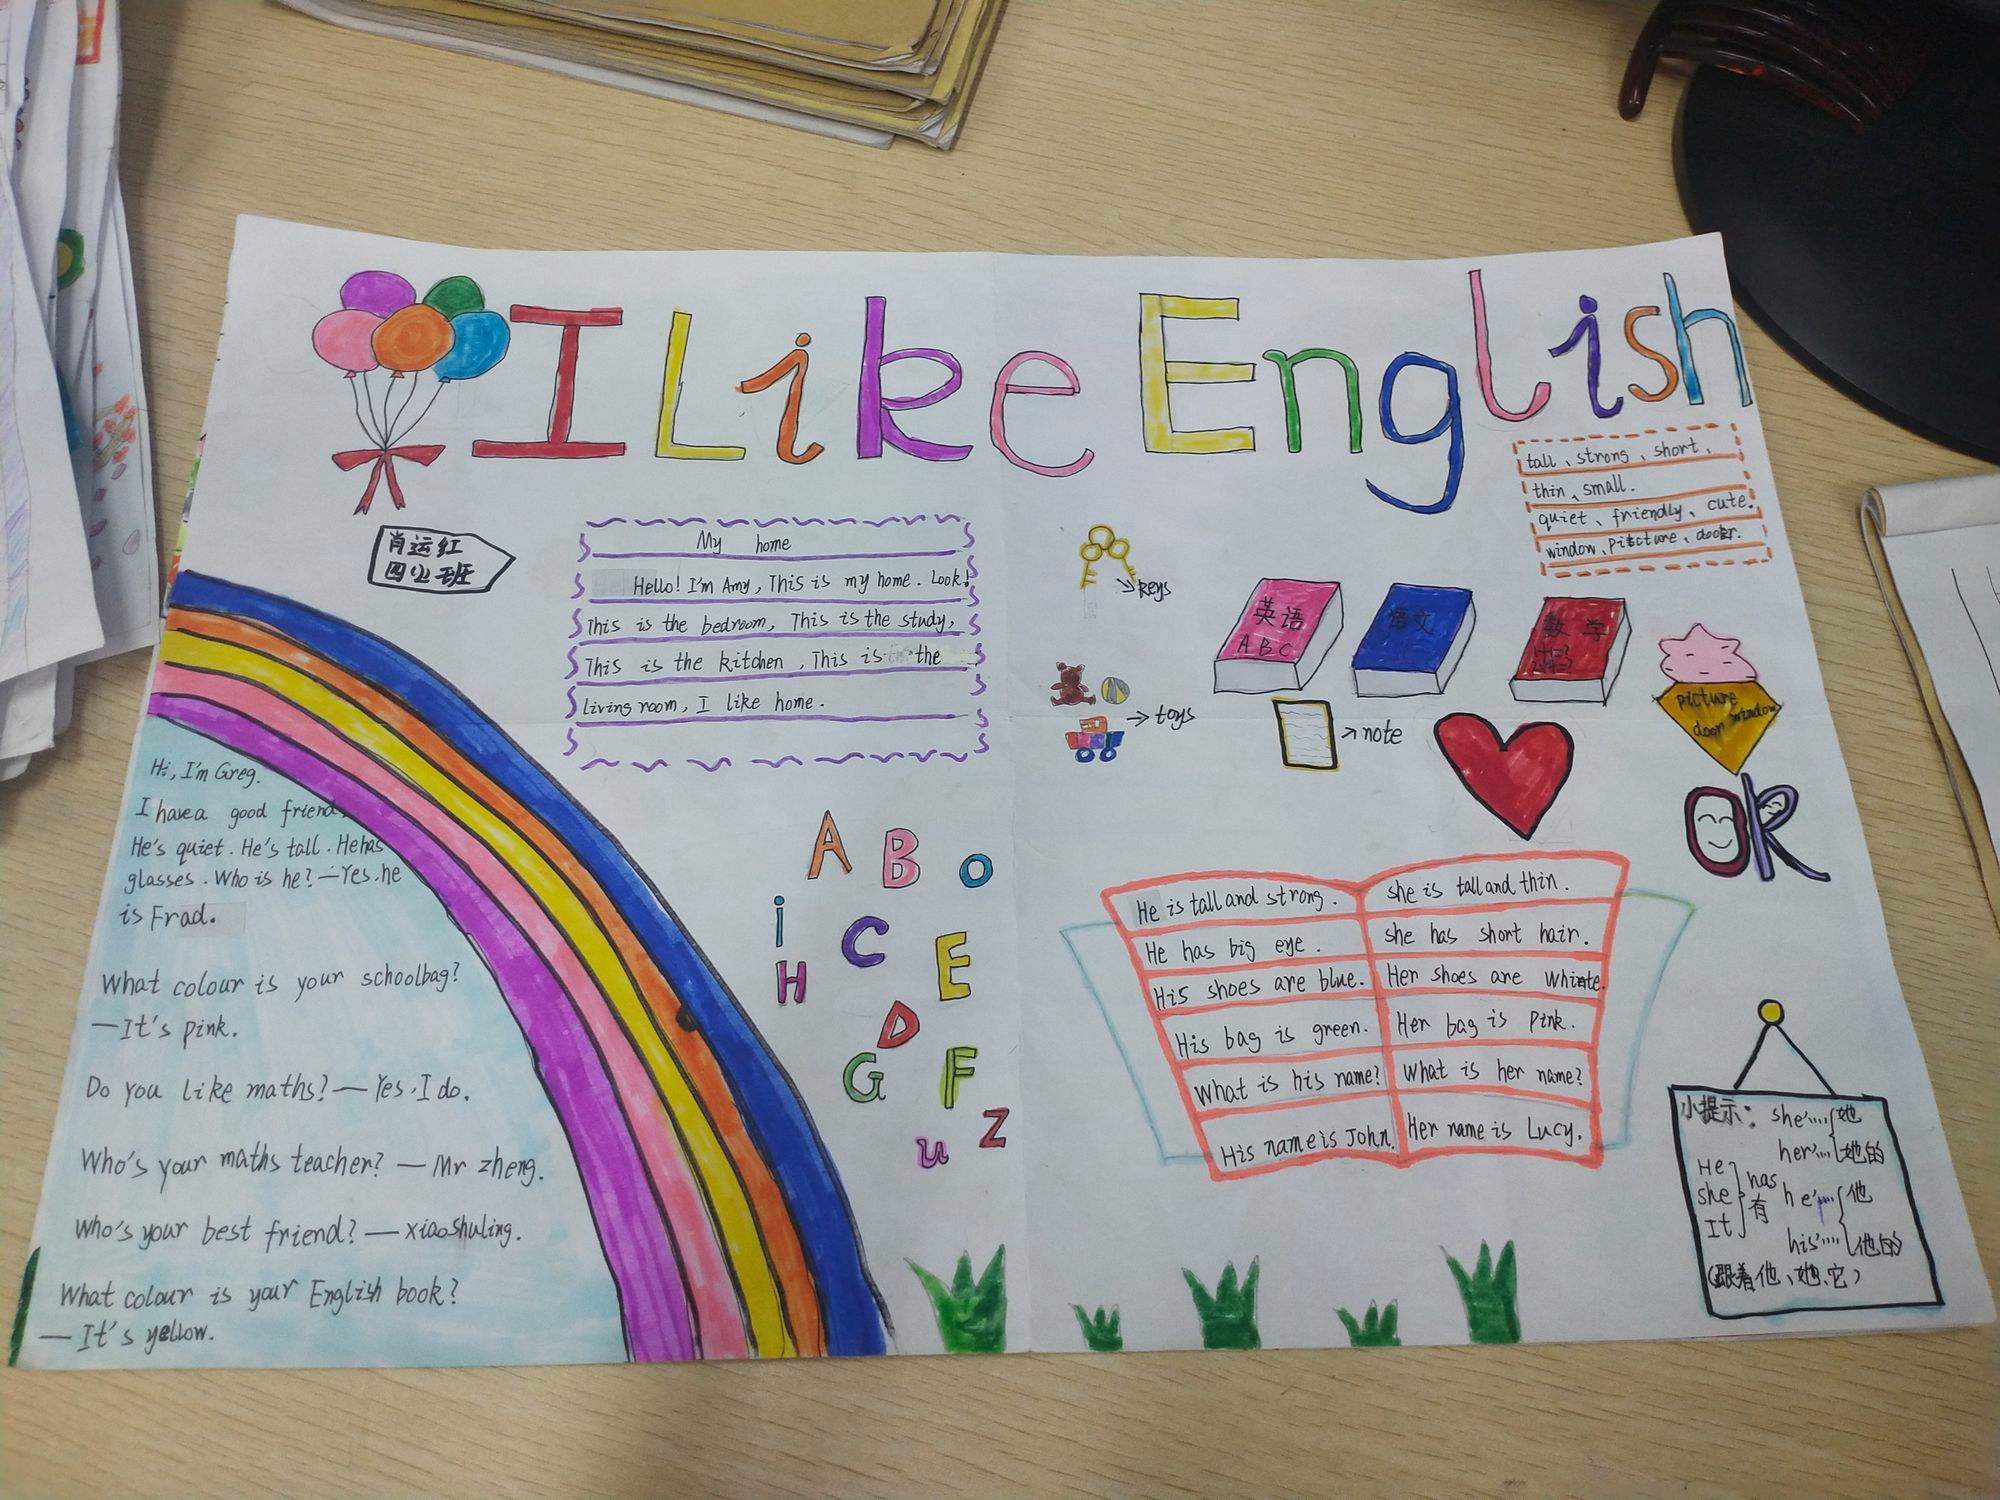 I Like English
肖运红
四(2)班
My home
Hello! I'm Amy, This is my home. Look!
This is the bedroom, This is the study,
This is the kitchen, This is the
living room, I like home.
tall、strong、short、
thin、small.
quiet、friendly、cute.
window、picture、door.
keys
toys
note
英语
ABC
语文
数学
picture
door window
OK
Hi, I'm Greg.
I have a good friend.
He's quiet. He's tall. He has
glasses. Who is he? — Yes, he
is Frad.
What colour is your schoolbag?
— It's pink.
Do you like maths? — Yes, I do.
Who's your maths teacher? — Mr zheng.
Who's your best friend? — xiaoshuling.
What colour is your English book?
— It's yellow.
A B o
i C E
H D
G F
u Z
He is tall and strong.
He has big eye.
His shoes are blue.
His bag is green.
What is his name?
His name is John.
she is tall and thin.
she has short hair.
Her shoes are white.
Her bag is pink.
What is her name?
Her name is Lucy.
小提示: she……她
her……她的
He
she
It
has
有
he……他
his……他的
(跟着他、她、它)